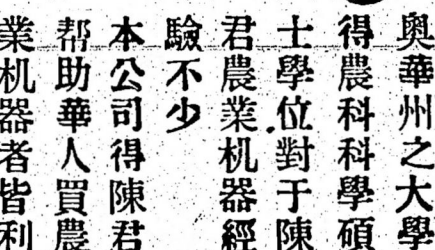 奧華州之大學
得農科科學碩
士學位對于陳
君農業机器經
驗不少
本公司得陳君
帮助華人買農
業机器者皆利